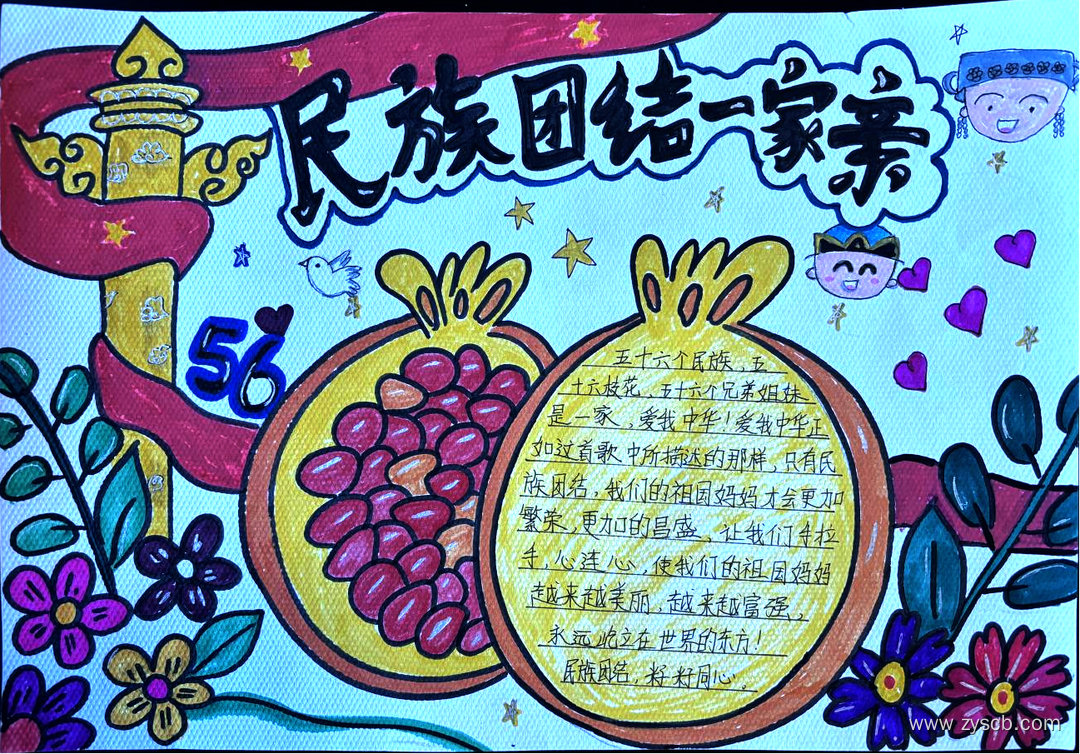 民族团结一家亲
56
五十六个民族,五
十六枝花、五十六个兄弟姐妹
是一家,爱我中华!爱我中华正
如过首歌中所描述的那样,只有民
族团结,我们的祖国妈妈才会更加
繁荣,更加的昌盛,让我们手拉
手,心连心,使我们的祖国妈妈
越来越美丽。越来越富强。
永远屹立在世界的东方!
民族团结,好好同心。
www.zyscb.com